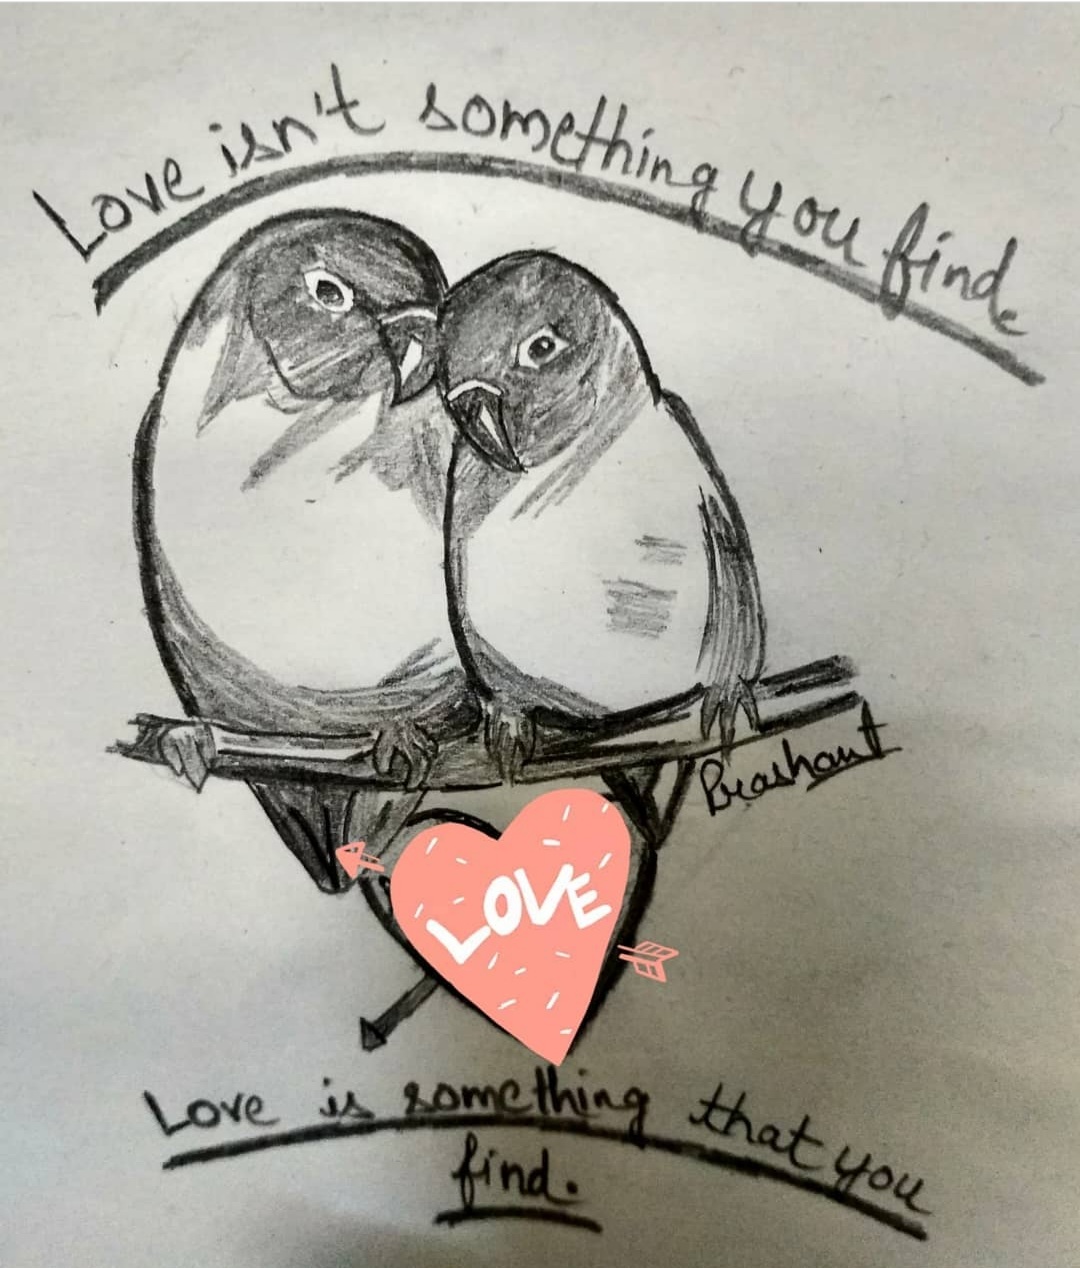 Love isn't something you find.
Prashant
LOVE
Love is something that you
find.